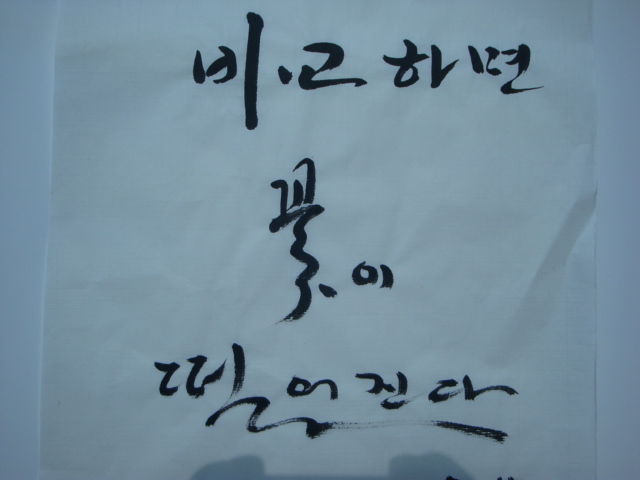 비교하면
꽃이
떨어진다